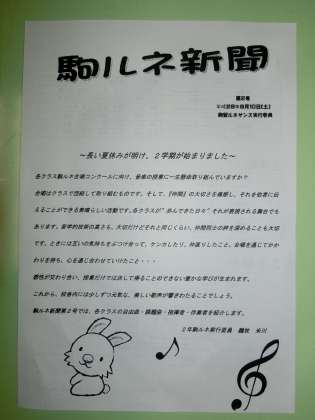 駒ルネ新聞
第2号
平成28年9月10日(土)
駒留ルネサンス実行委員
～長い夏休みが明け、2学期が始まりました～
各クラス駒ルネ合唱コンクールに向け、音楽の授業に一生懸命取り組んでいますか？
合唱はクラスで団結して取り組むものです。そして、『仲間』の大切さを痛感し、それを他者に伝
えることができる素晴らしい活動です。各クラスが“歩んできた日々”それが表現される舞台でも
あります。音楽的技術の高さも、大切だけどそれと同じくらい、仲間同士の絆を深めることも大切
です。ときには互いの気持ちをぶつけ合って、ケンカしたり、仲直りしたこと、合唱を通じてかか
わりを持ち、心を通じ合わせていけたこと・・・
個性が交わり合い、授業だけでは決して得ることのできない豊かな学びが生まれます。
これから、校舎内には少しずつ元気な、美しい歌声が響きわたることでしょう。
駒ルネ新聞第2号では、各クラスの自由曲・課題曲・指揮者・伴奏者を紹介します。
2年駒ルネ実行委員